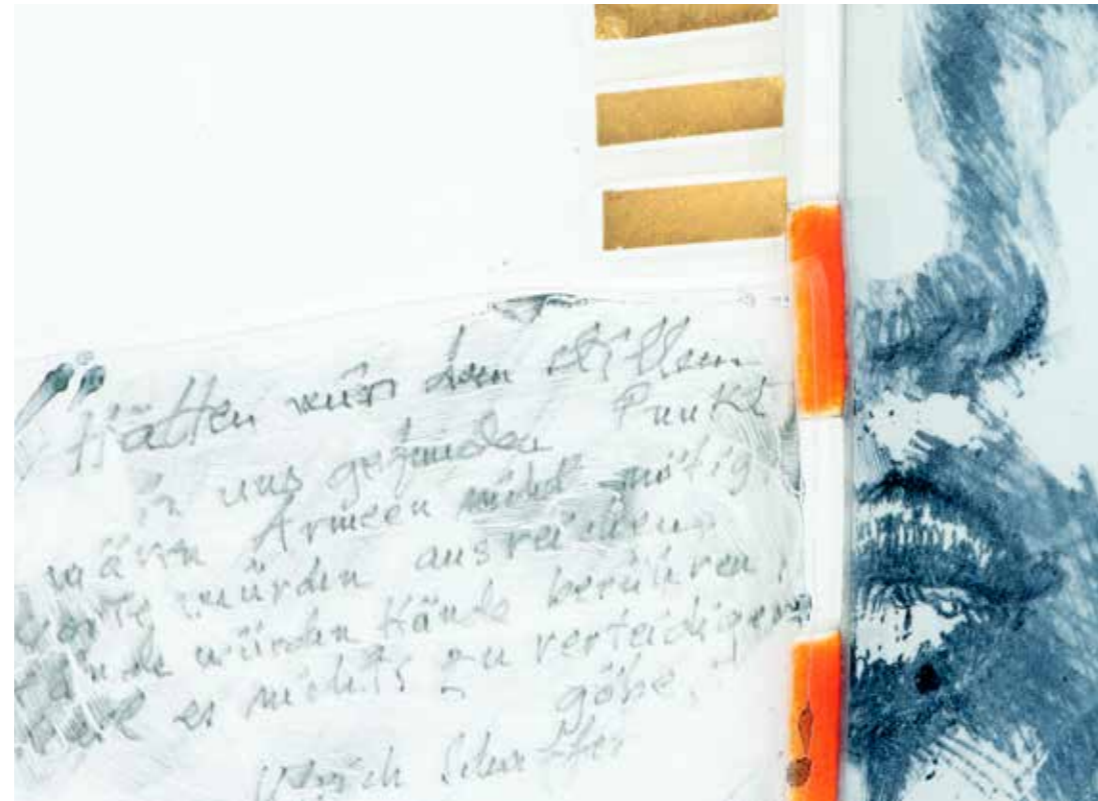 "Hätten wir den stillen
in uns gefunden Punkt
wären Armeen nicht nötig,
Worte würden ausreichen
Hände würden Hände berühren,
es nichts zu verteidigen
gäbe."
Ulrich Schaffer